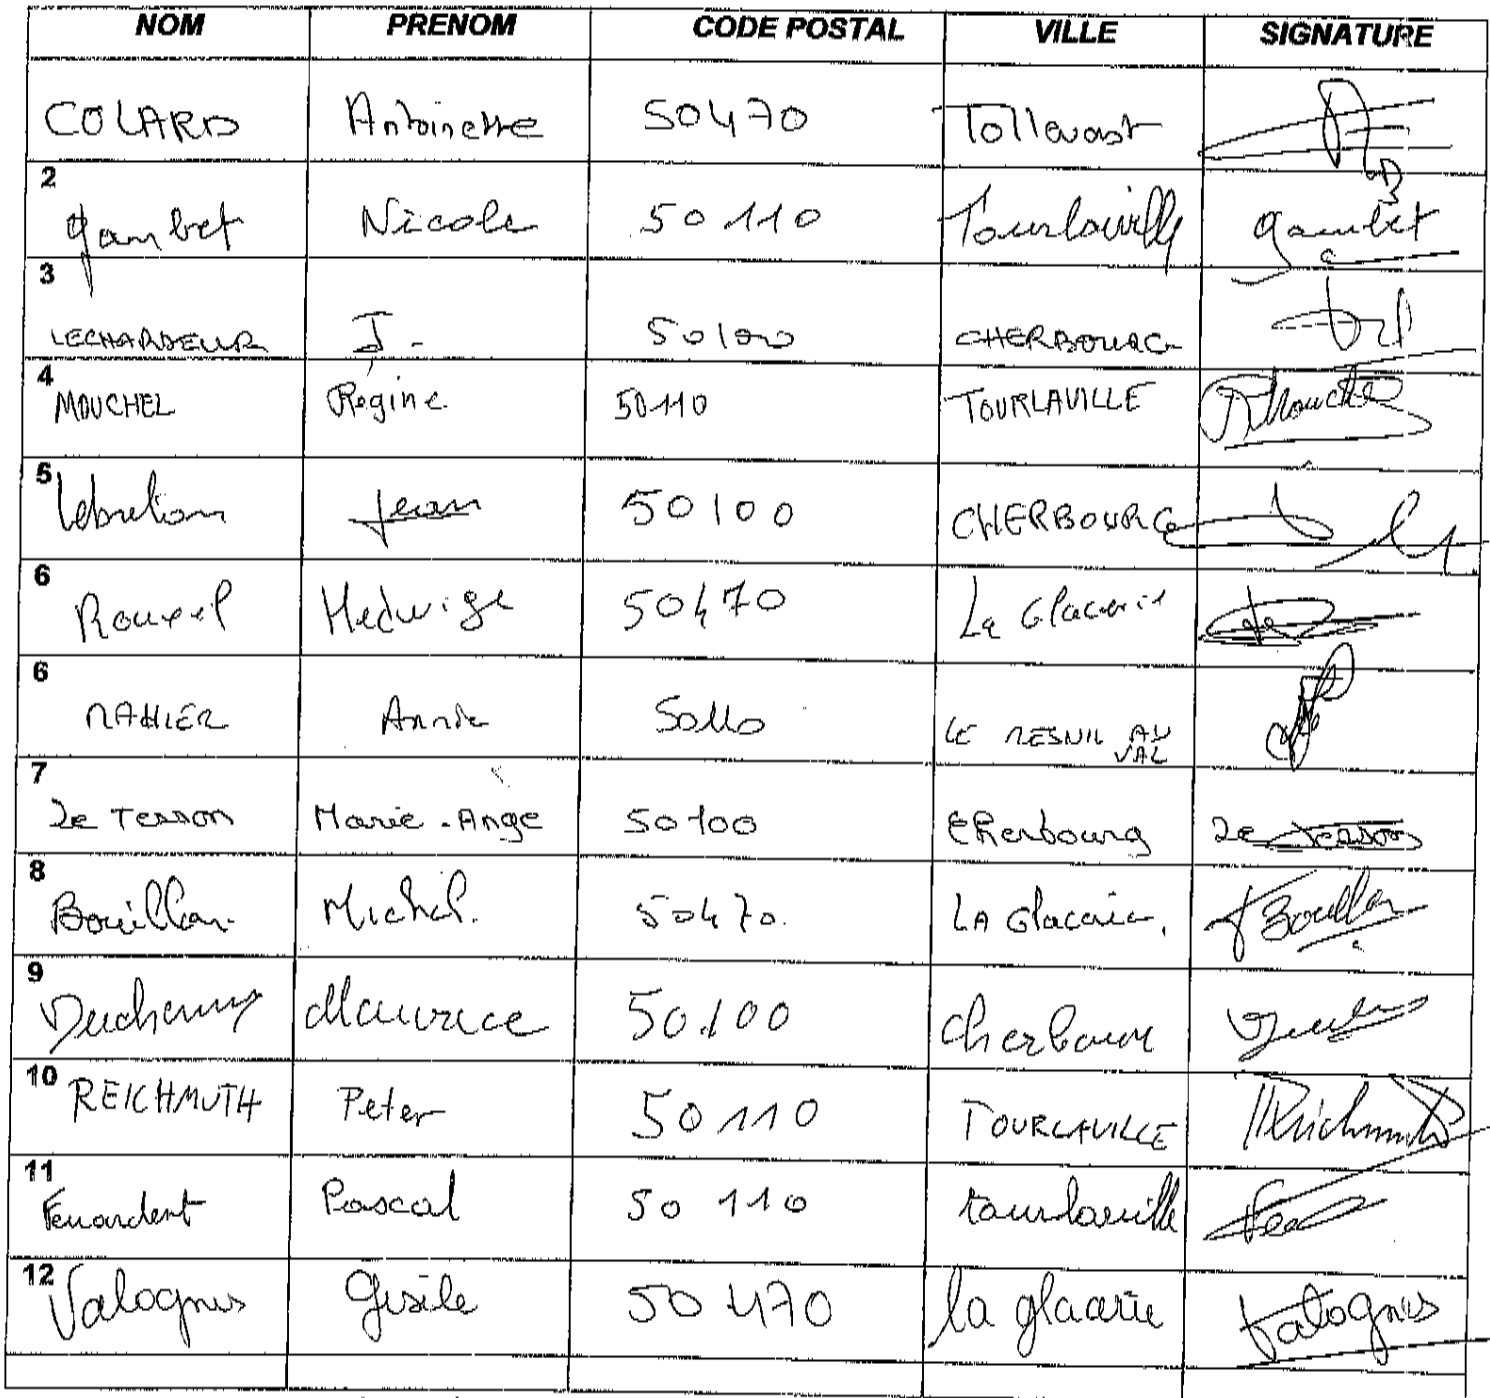 NOM PRENOM CODE POSTAL VILLE SIGNATURE
COLARD Antoinette 50470 Tollevast
2 Gambet Nicole 50110 Tourlaville Gambet
3 LECHARDEUR J. 50100 CHERBOURG
4 MOUCHEL Régine 50110 TOURLAVILLE RMouchel
5 Lebreton Jean 50100 CHERBOURG
6 Rouxel Hedwige 50470 La Glacerie
6 MAHIER Annie 50110 LE MESNIL AU VAL
7 Le Tesson Marie-Ange 50100 Cherbourg Le Tesson
8 Bouillon Michel. 50470. LA Glacerie. Bouillon
9 Maurice 50100 Cherbourg
10 REICHMUTH Peter 50110 TOURLAVILLE Reichmuth
11 Fenardent Pascal 50 110 tourlaville
12 Valognes Gisèle 50470 la glacerie Valognes